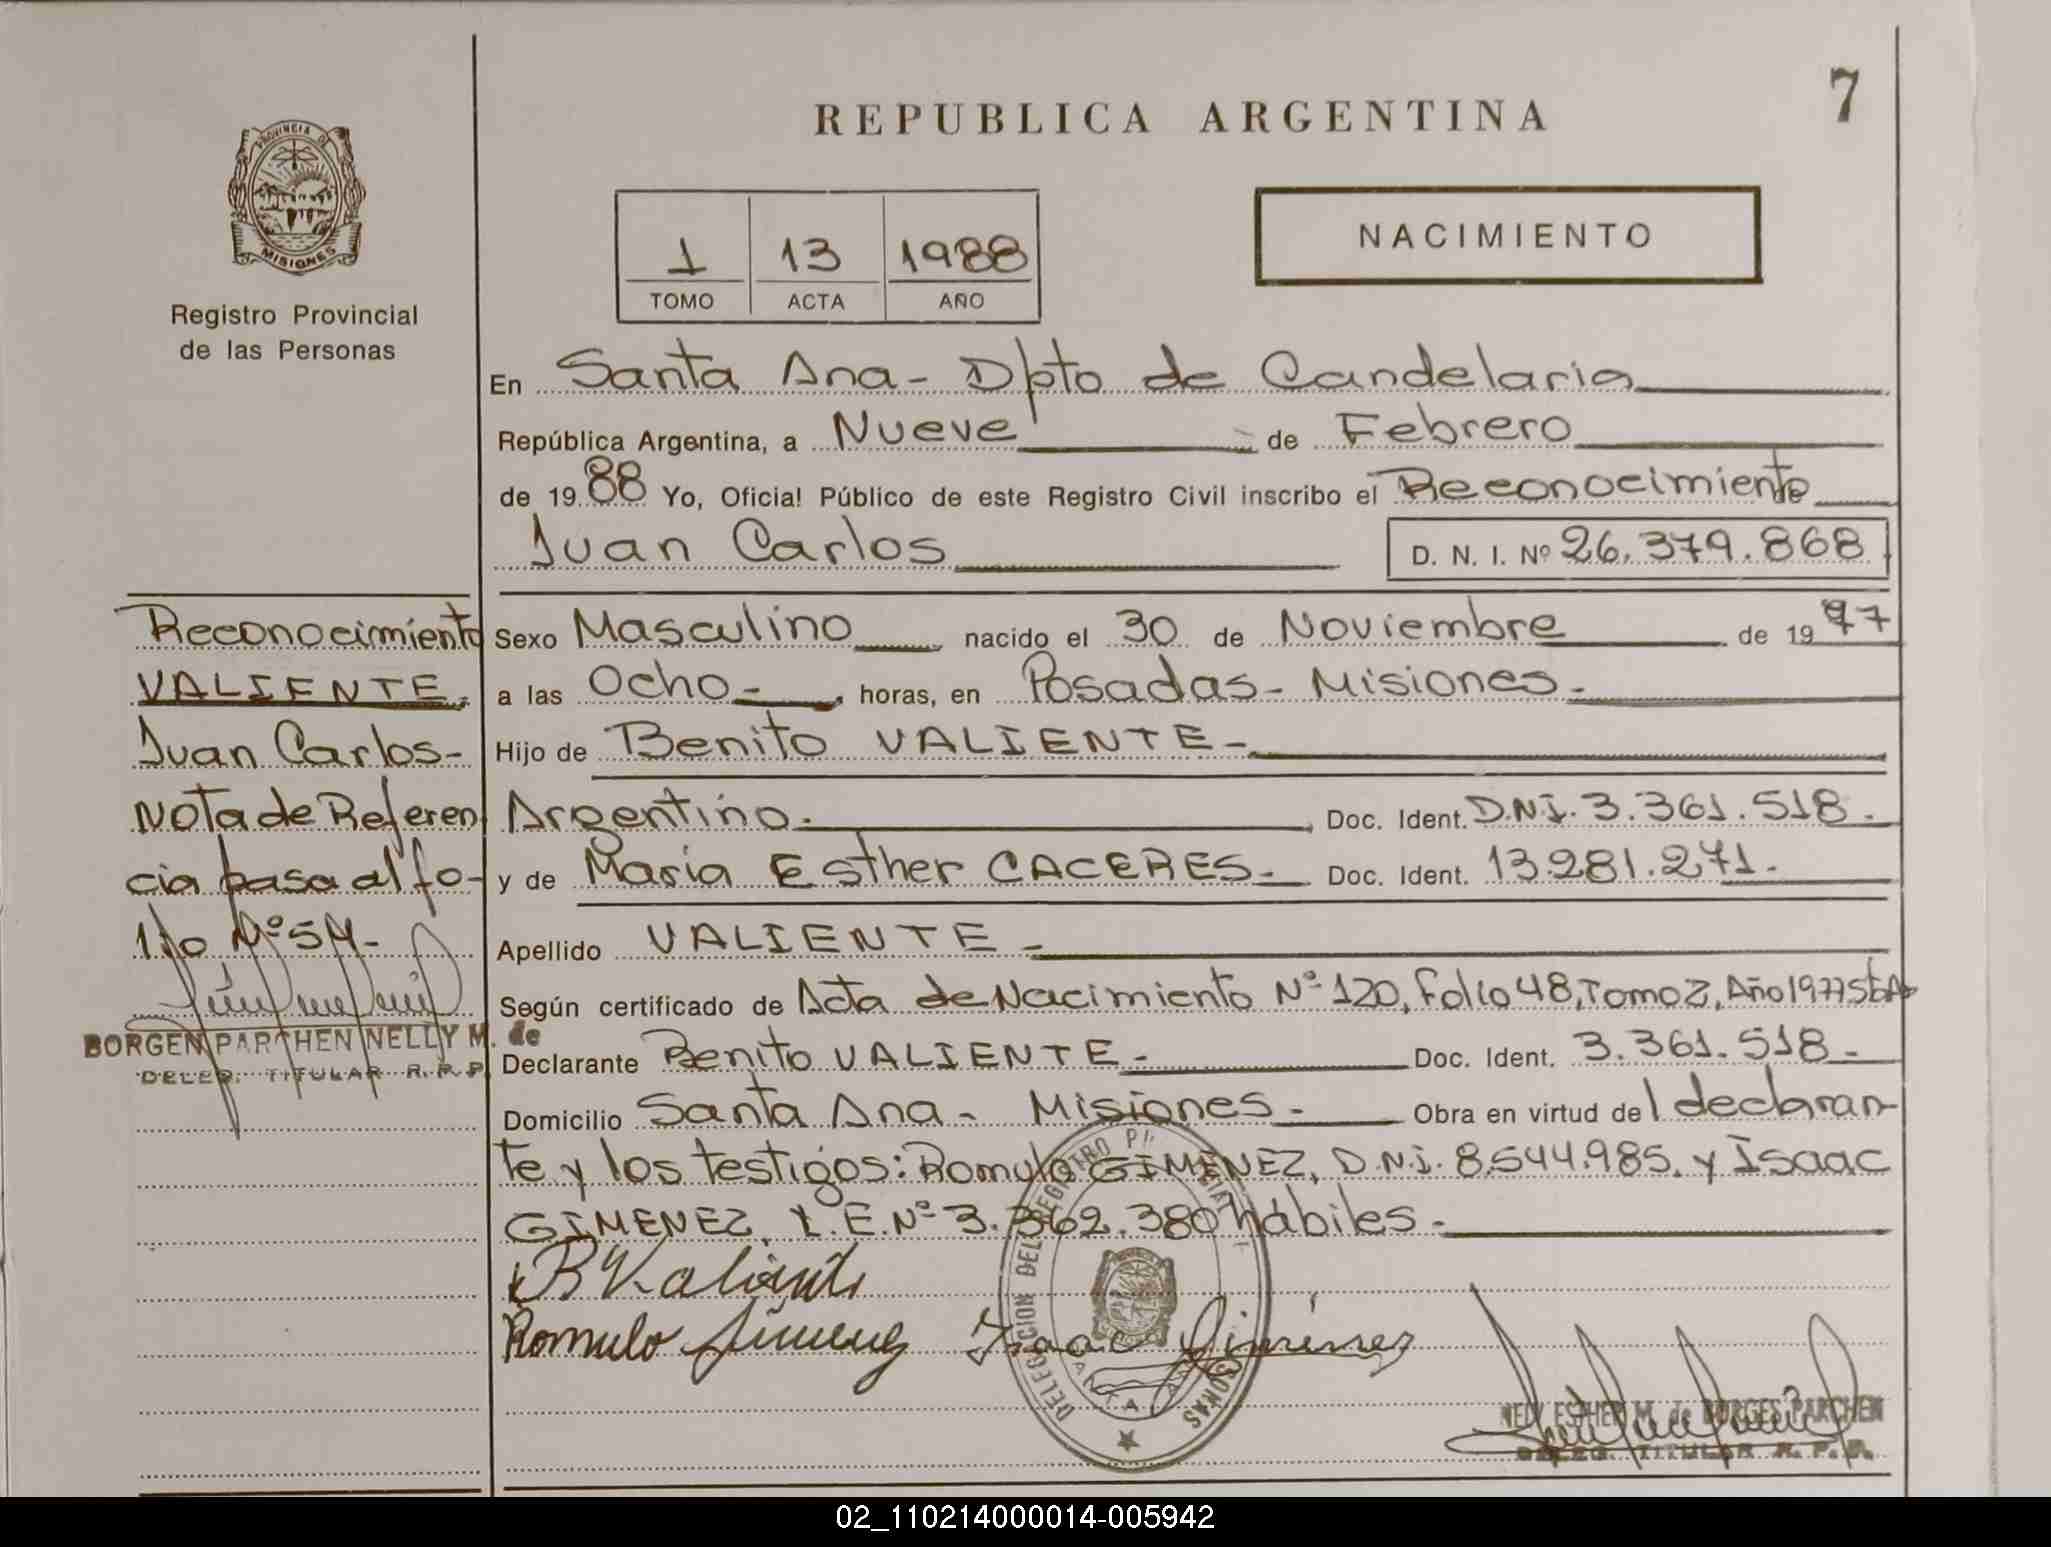 7
REPUBLICA ARGENTINA
PROVINCIA DE
MISIONES
Registro Provincial
de las Personas
1 13 1988
TOMO ACTA AÑO
NACIMIENTO
En Santa Ana - Dpto de Candelaria
República Argentina, a Nueve de Febrero
de 1988 Yo, Oficial Público de este Registro Civil inscribo el Reconocimiento
Juan Carlos D. N. I. Nº 26.379.868
Sexo Masculino nacido el 30 de Noviembre de 1977
a las Ocho - horas, en Posadas - Misiones -
Hijo de Benito VALIENTE -
Argentino. Doc. Ident. D.N.I. 3.361.518.
y de Maria Esther CACERES. Doc. Ident. 13.281.271.
Apellido VALIENTE -
Según certificado de Acta de Nacimiento Nº 120, Folio 48, Tomo 2, Año 1977 Sta A
Declarante Benito VALIENTE - Doc. Ident. 3.361.518 -
Domicilio Santa Ana - Misiones - Obra en virtud del declaran-
te y los testigos: Romulo GIMENEZ, D.N.I. 8.544.985. y Isaac
GIMENEZ, L.E. Nº 3.362.380 hábiles -
B Valiente
Romulo Jimenez Isaac Jiménez
DELEGACION DEL REGISTRO PROVINCIAL
SANTA ANA
NELY ESTHER M. de BORGES PARCHEN
DELEG. TITULAR R. P. P.
Reconocimiento
VALIENTE,
Juan Carlos -
Nota de Referen
cia pasa al fo-
lio Nº 54 -
BORGEN PARCHEN NELLY M. de
DELEG. TITULAR R. P. P.
02_110214000014-005942